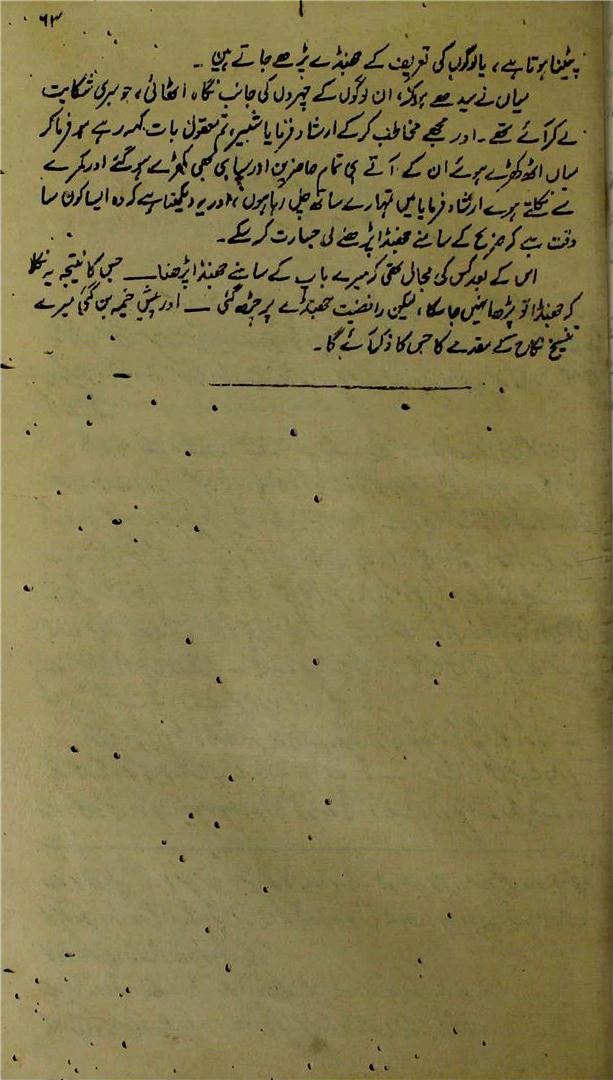 ۶۳
پیٹنا ہوتا ہے، یا لوگوں کی تعریف کے جھنڈے پڑھے جاتے ہیں۔
میاں نے سیدھے ہو کر، ان لوگوں کے چہروں کی جانب نگاہ اٹھائی، جو میری شکایت
لے کر آئے تھے۔ اور مجھے مخاطب کر کے ارشاد فرمایا شبیر، تم معقول بات کہہ رہے ہو فرما کر
میاں اٹھ کھڑے ہوئے ان کے آتے ہی تمام حاضرین اور سپاہی بھی کھڑے ہو گئے اور کمرے
سے نکلتے ہوئے ارشاد فرمایا میں تمہارے ساتھ چل رہا ہوں، اور یہ دیکھنا ہے کہ وہ ایسا کون سا
وقت ہے کہ ضریح کے سامنے جھنڈا پڑھنے کی جسارت کر سکے۔
اس کے بعد کس کی مجال تھی کہ میرے باپ کے سامنے جھنڈا پڑھتا — جس کا نتیجہ یہ نکلا
کہ جھنڈا تو پڑھا نہیں جا سکا، لیکن رافضیت جھنڈے پر چڑھ گئی — اور پیش خیمہ بن گئی میرے
تنسیخ نکاح کے مقدمے کا جس کا ذکر آئے گا۔